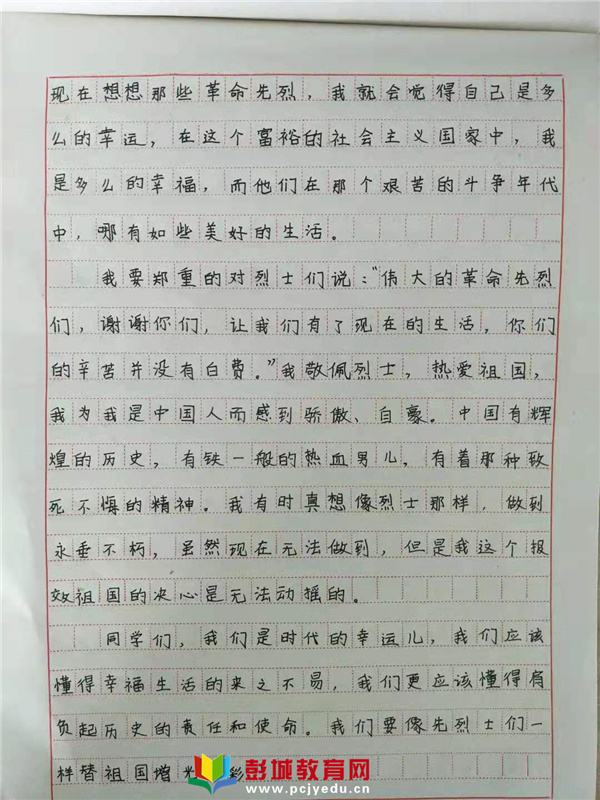 现在想想那些革命先烈，我就会觉得自己是多
么的幸运，在这个富裕的社会主义国家中，我
是多么的幸福，而他们在那个艰苦的斗争年代
中，哪有如些美好的生活。
我要郑重的对烈士们说：“伟大的革命先烈
们，谢谢你们，让我们有了现在的生活，你们
的辛苦并没有白费。”我敬佩烈士，热爱祖国，
我为我是中国人而感到骄傲、自豪。中国有辉
煌的历史，有铁一般的热血男儿，有着那种致
死不悔的精神。我有时真想像烈士那样，做到
永垂不朽，虽然现在无法做到，但是我这个报
效祖国的决心是无法动摇的。
同学们，我们是时代的幸运儿，我们应该
懂得幸福生活的来之不易，我们更应该懂得肩
负起历史的责任和使命。我们要像先烈士们一
样替祖国增光 彩
彭城教育网
www.pcjyedu.cn